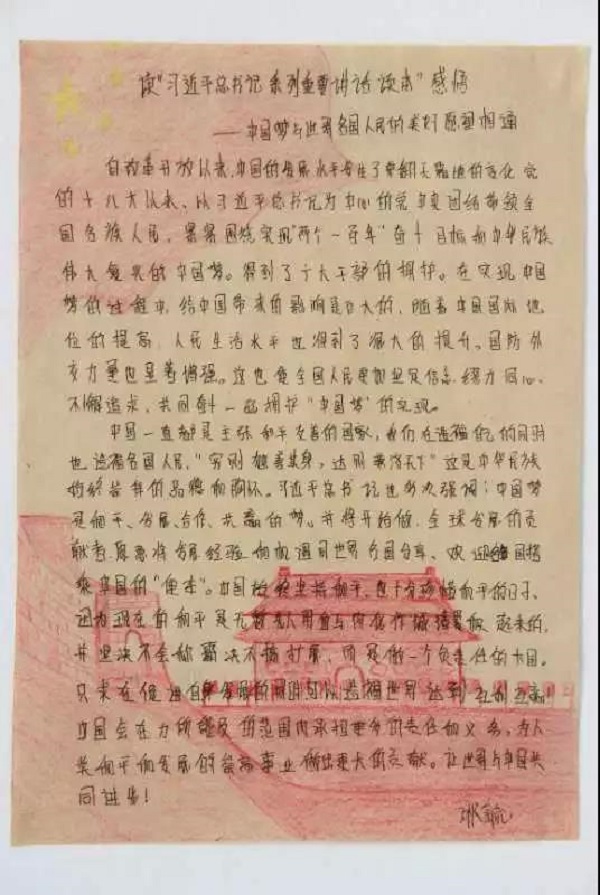 读"习近平总书记系列重要讲话读本"感悟
——中国梦与世界各国人民的美好愿望相通
自改革开放以来,中国的发展水平发生了翻天覆地的变化 党
的十八大以来、以习近平总书记为中心的党中央团结带领全
国各族人民,紧紧围绕实现"两个一百年"奋斗目标和中华民族
伟大复兴的中国梦。得到了广大干部的拥护。在实现中国
梦的过程中,给中国带来的影响是巨大的,随着中国国际地
位的提高,人民生活水平也得到了很大的提升。国防外
交力量也显著增强。这也使全国人民更加坚定信念.努力同心、
不懈追求,共同奋斗一致拥护"中国梦"的实现。
中国一直都是主张和平友善的国家,我们在造福自己的同时
也造福各国人民,"穷则独善其身,达则兼济天下"这是中华民族
始终崇尚的品德和胸怀。习近平总书记也多次强调:中国梦
是和平、发展、合作、共赢的梦。并将开始做,全球发展的贡
献者愿意将发展经验和机遇同世界各国分享、欢迎各国搭
乘中国的"便车"。中国始终坚持和平,也十分珍惜和平的日子,
因为现在的和平是无数人用血与 起来的,
并坚决不会称霸决不搞扩张,而是做一个负责任的大国。
只求在促进自身发展的同时可以造福世界 达到 互利互赢!
中国会在力所能及的范围内承担更多的责任和义务,为人
类和平和发展的崇高事业做出更大的贡献。让世界与中国共
同进步!